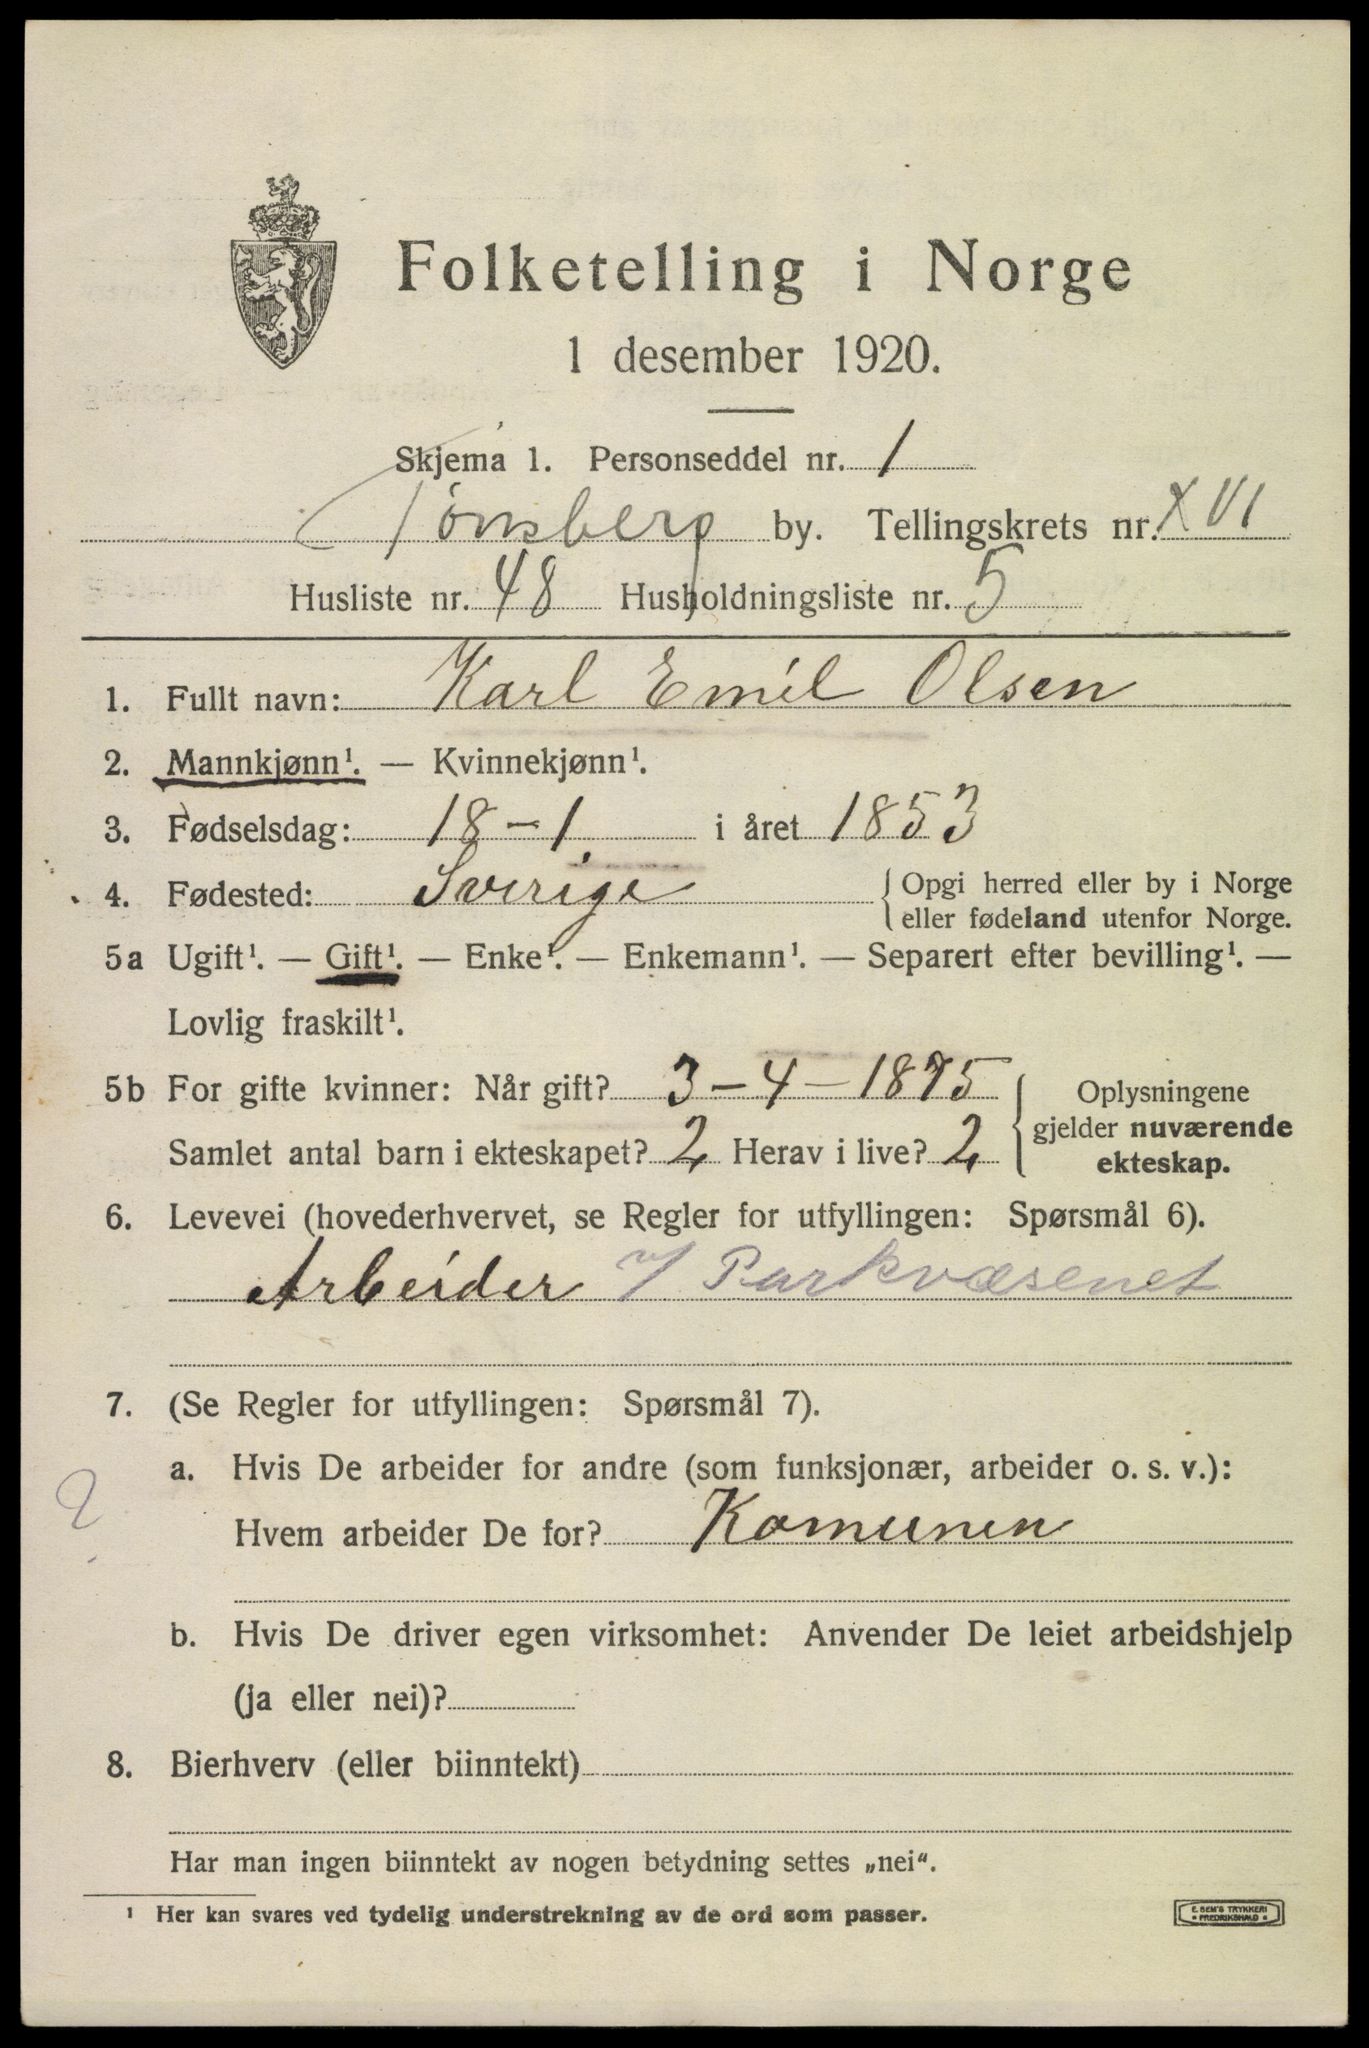 Folketelling i Norge
1 desember 1920.
Skjema 1. Personseddel nr. 1
Tønsberg by. Tellingskrets nr. XVI
Husliste nr. 48 Husholdningsliste nr. 5
1. Fullt navn: Karl Emil Olsen
2. Mannkjønn¹. — Kvinnekjønn¹.
3. Fødselsdag: 18-1 i året 1853
4. Fødested: Sverige { Opgi herred eller by i Norge
eller fødeland utenfor Norge.
5a Ugift¹. — Gift¹. — Enke¹. — Enkemann¹. — Separert efter bevilling¹. —
Lovlig fraskilt¹.
5b For gifte kvinner: Når gift? 3-4-1875 { Oplysningene
gjelder nuværende
Samlet antal barn i ekteskapet? 2 Herav i live? 2
ekteskap.
6. Levevei (hovederhvervet, se Regler for utfyllingen: Spørsmål 6).
Arbeider v/ Parkvæsenet
7. (Se Regler for utfyllingen: Spørsmål 7).
a. Hvis De arbeider for andre (som funksjonær, arbeider o. s. v.):
?
Hvem arbeider De for? Komunen
b. Hvis De driver egen virksomhet: Anvender De leiet arbeidshjelp
(ja eller nei)?
8. Bierhverv (eller biinntekt)
Har man ingen biinntekt av nogen betydning settes „nei“.
¹ Her kan svares ved tydelig understrekning av de ord som passer.
E. SEM'S TRYKKERI
• FREDRIKSHALD •